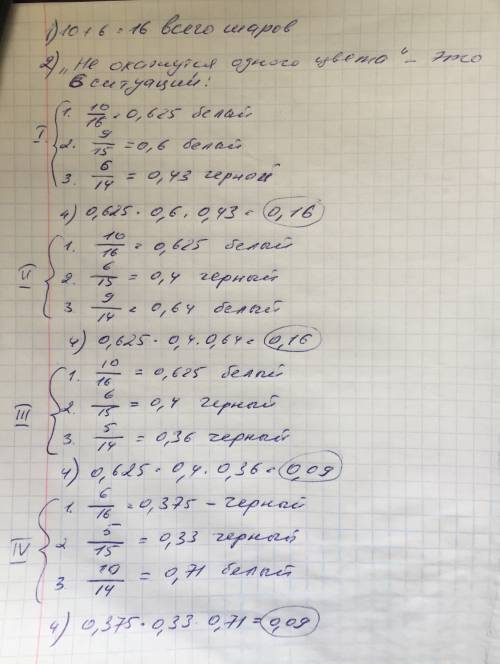 1) 10 + 6 = 16 всего шаров
2) "Не окажутся одного цвета" - это
6 ситуаций:
I 1. 10/16 = 0,625 белый
2. 9/15 = 0,6 белый
3. 6/14 = 0,43 черной
4) 0,625 · 0,6 · 0,43 = 0,16
II 1. 10/16 = 0,625 белый
2. 6/15 = 0,4 черный
3 9/14 = 0,64 белый
4) 0,625 · 0,4 · 0,64 = 0,16
III 1. 10/16 = 0,625 белый
2. 6/15 = 0,4 черный
3. 5/14 = 0,36 черный
4) 0,625 · 0,4 · 0,36 = 0,09
IV 1. 6/16 = 0,375 - черный
2 5/15 = 0,33 черный
3. 10/14 = 0,71 белый
4) 0,375 · 0,33 · 0,71 = 0,09